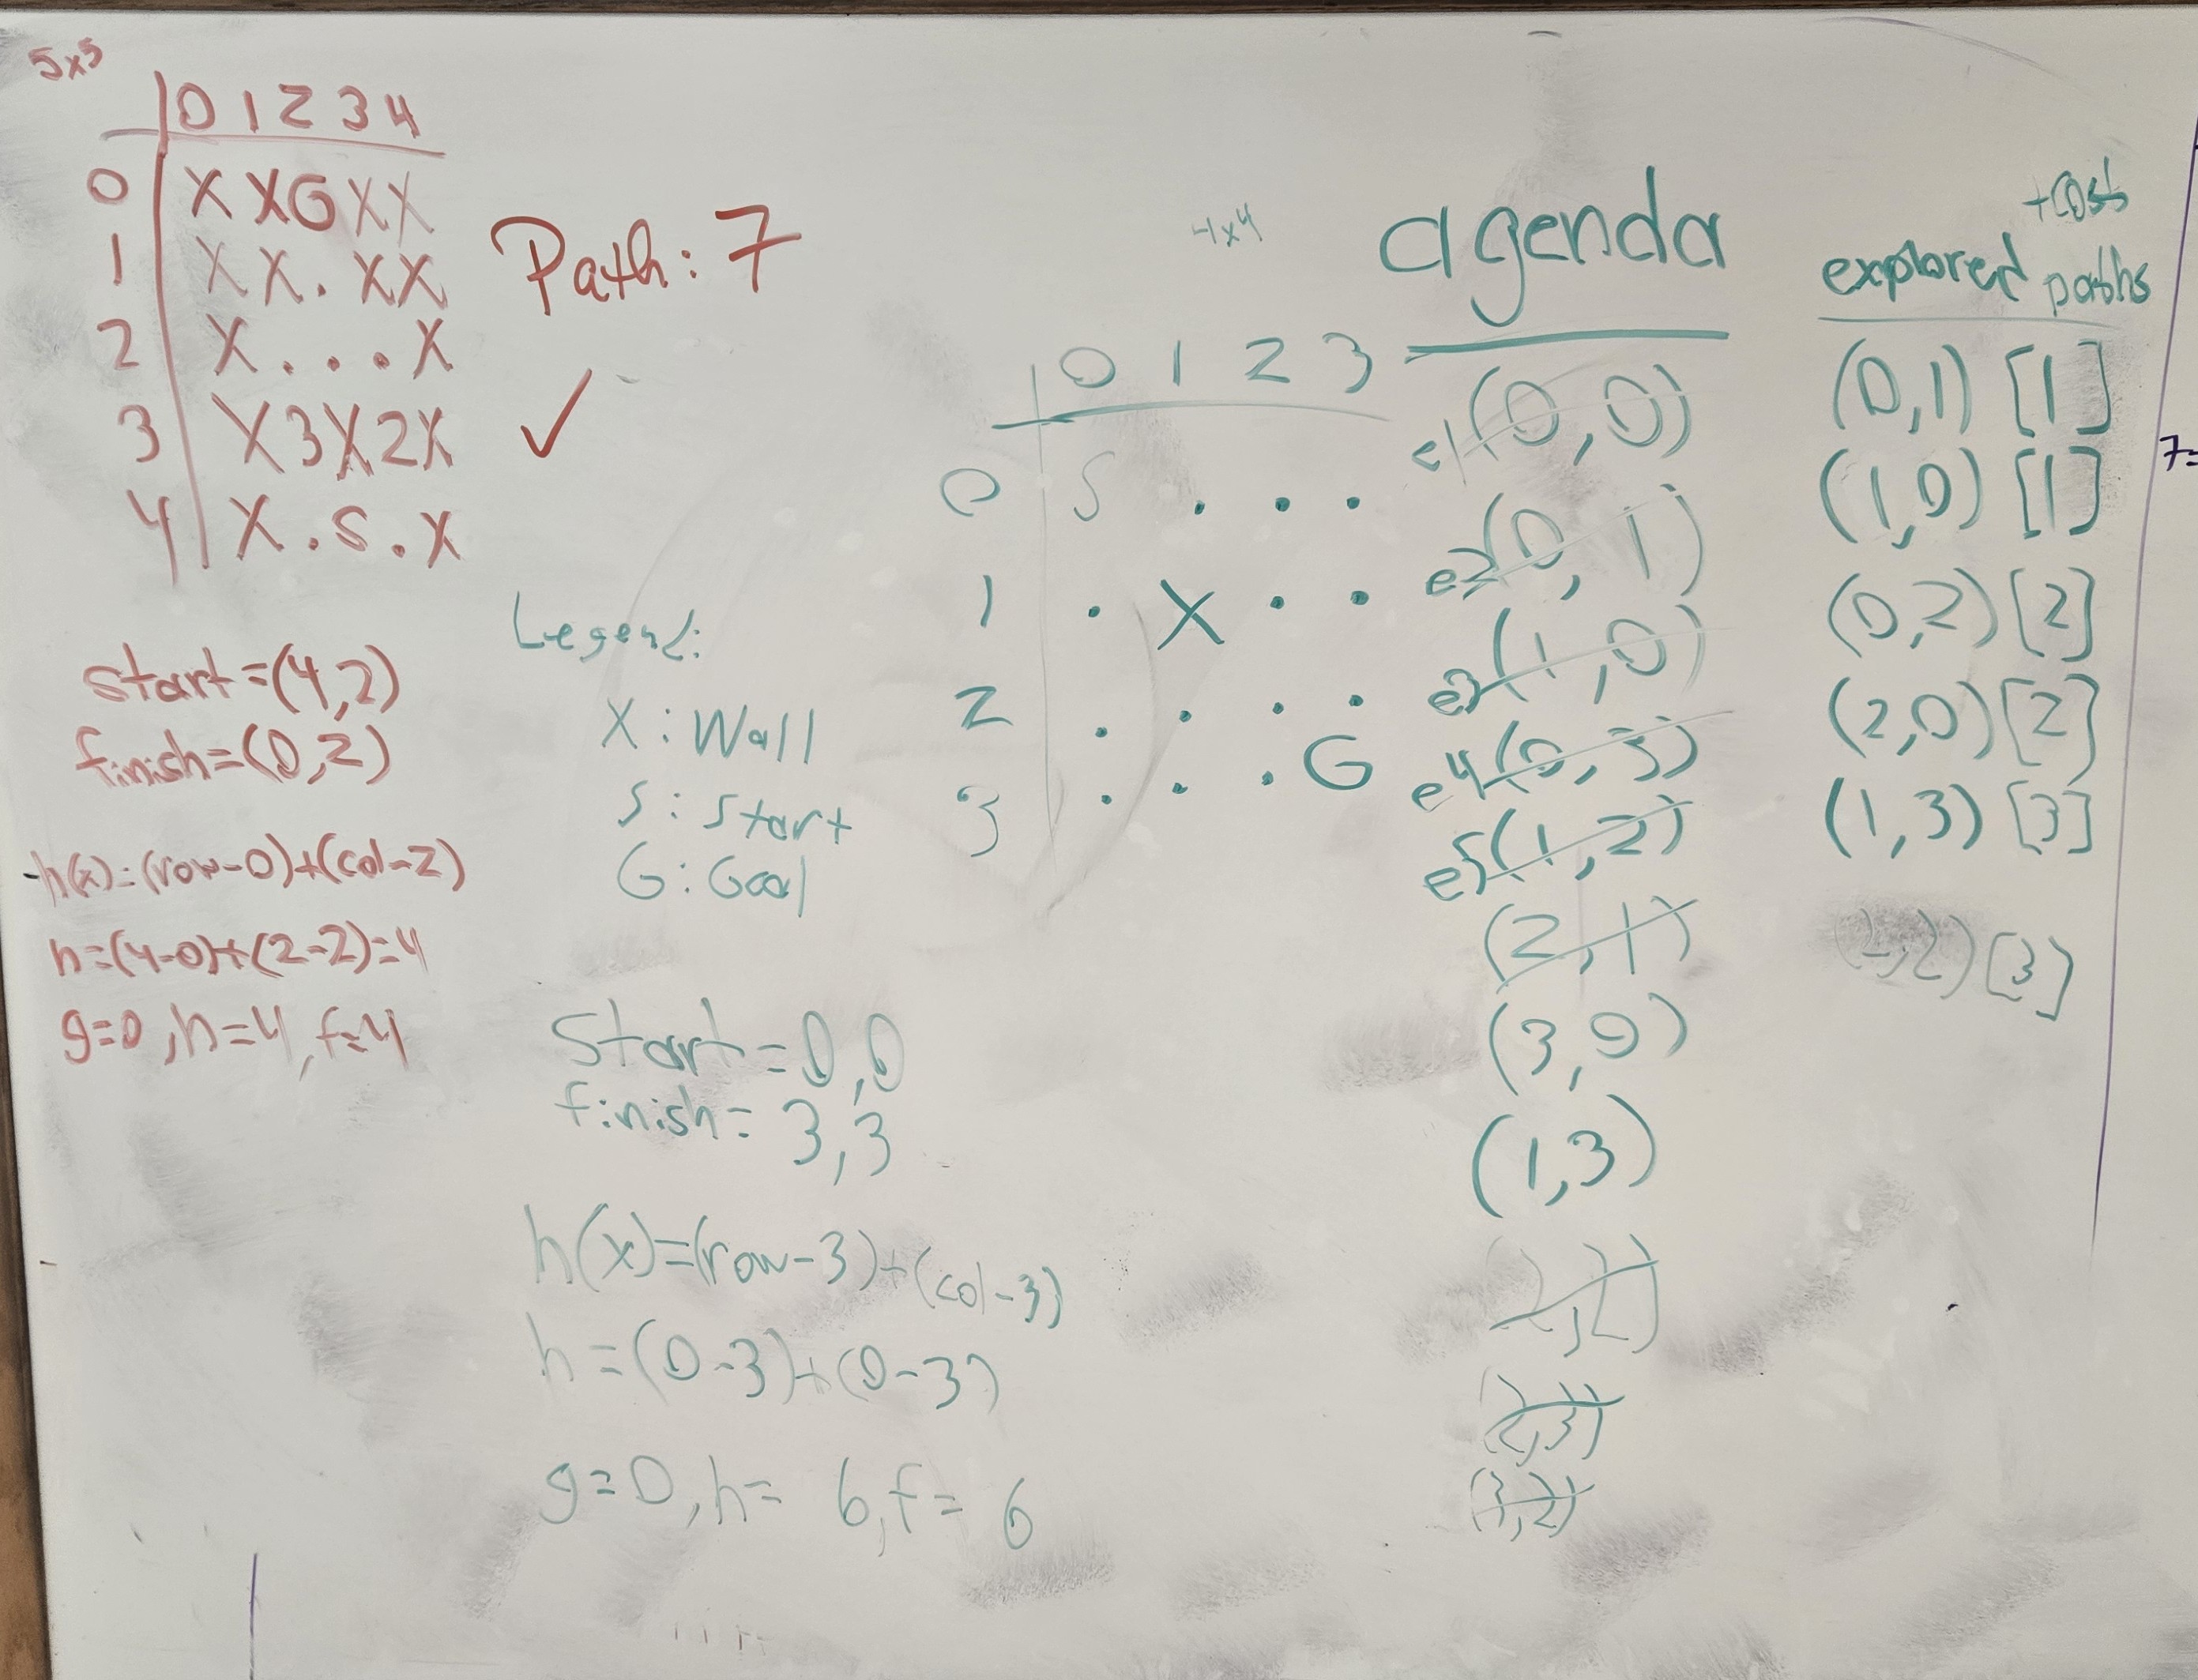 5x5
0 1 2 3 4
0 X X G X X
1 X X . X X
2 X . . . X
3 X 3 X 2 X
4 X . S . X
Path: 7
✓
start=(4,2)
finish=(0,2)
h(x)=(row-0)+(col-2)
h=(4-0)+(2-2)=4
g=0, h=4, f=4
Legend:
X: Wall
S: Start
G: Goal
4x4
0 1 2 3
0 S . . .
1 . X . .
2 . . . .
3 . . . G
Start = 0,0
finish = 3,3
h(x)=(row-3)+(col-3)
h=(0-3)+(0-3)
g=0, h= 6, f= 6
agenda
e1 (0,0)
e2 (0,1)
e3 (1,0)
e4 (0,3)
e5 (1,2)
(2,1)
(3,0)
(1,3)
(2,2)
(2,3)
(3,2)
+cost
explored paths
(0,1) [1]
(1,0) [1]
(0,2) [2]
(2,0) [2]
(1,3) [3]
[3]
7=